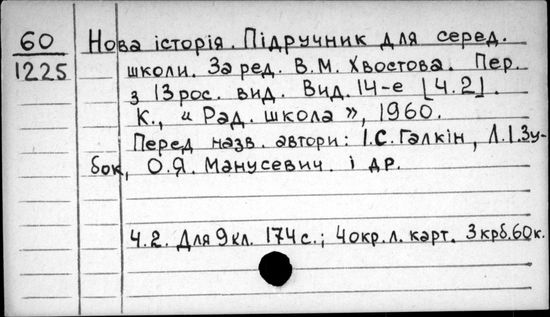 60 Нова історія. Підручник для серед.
1225 школи. За ред. В.М. Хвостова. Пер.
з 13 рос. вид. Вид. 14-е [Ч.2].
К., « Рад. школа », 1960.
Перед назв. автори: І.С. Галкін, Л.І. Зу-
бок, О.Я. Манусевич. і др.
Ч.2. Для 9 кл. 174 с.; 4 окр. л. карт. 3 крб. 60 к.